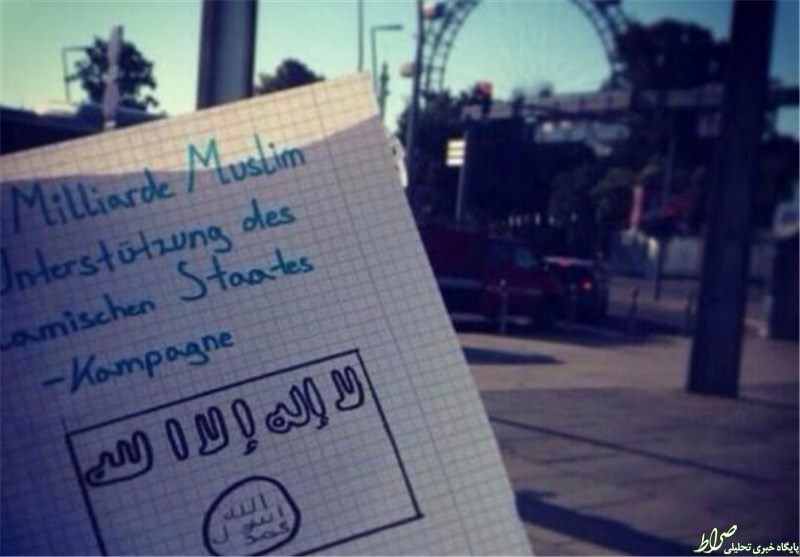 Milliarde Muslim
Unterstützung des
lamischen Staates
-Kampagne
لا إله إلا الله
الله
رسول
محمد
صراط
پایگاه خبری تحلیلی